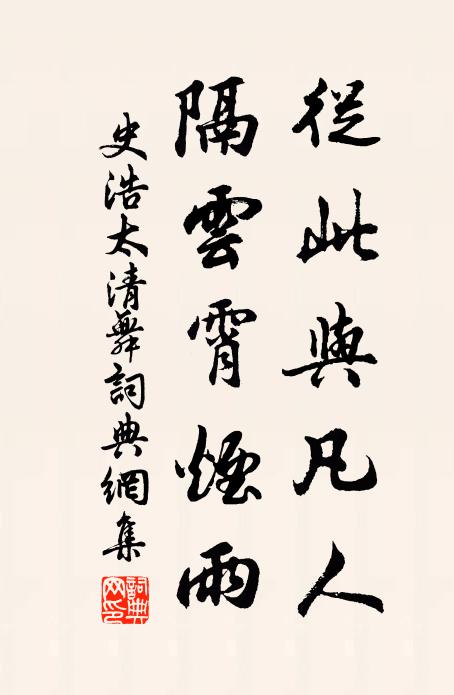 從此與凡人
隔雲霄煙雨
史浩太清舞詞典網集
詞典網印